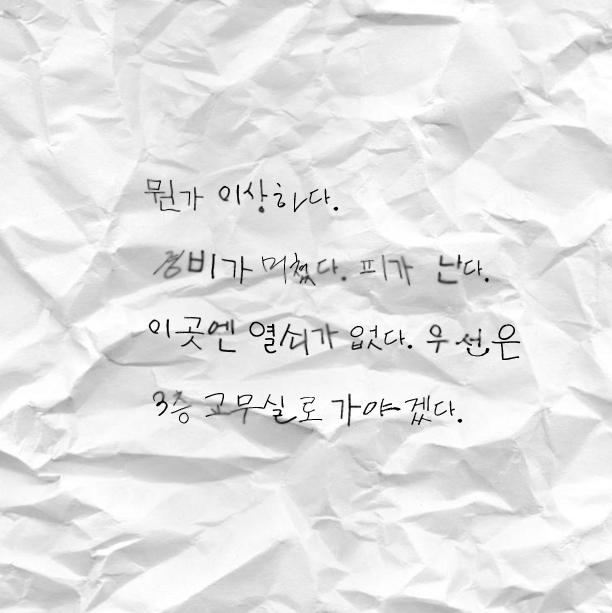 뭔가 이상하다.
경비가 미쳤다. 피가 난다.
이곳엔 열쇠가 없다. 우선은
3층 교무실로 가야겠다.